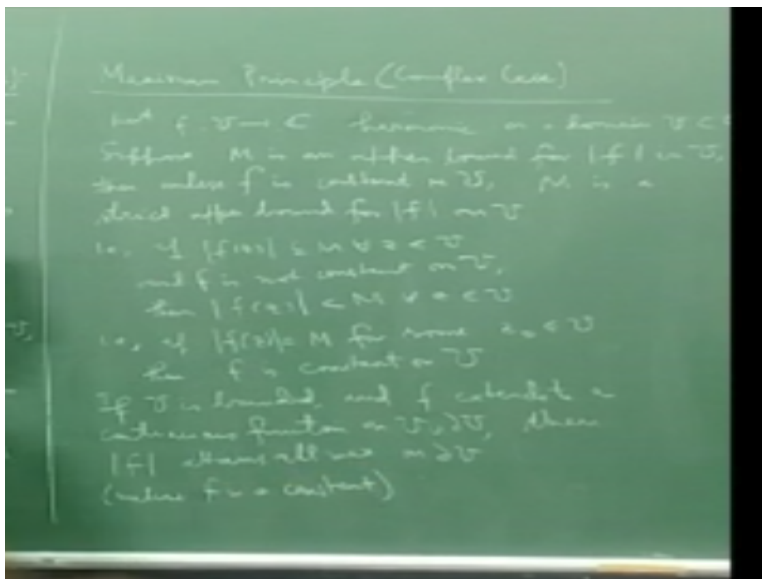 Maximum Principle (Complex Case)
Let f: U → C harmonic on a domain U ⊂ C
Suppose M is an upper bound for |f| on U,
then unless f is constant on U, M is a
strict upper bound for |f| on U
i.e., if |f(z)| ≤ M ∀ z ∈ U
and f is not constant on U,
then |f(z)| < M ∀ z ∈ U
i.e., if |f(z₀)| = M for some z₀ ∈ U
then f is constant on U
If U is bounded, and f extends to a
continuous function on U ∪ ∂U, then
|f| attains its max on ∂U
(unless f is a constant)